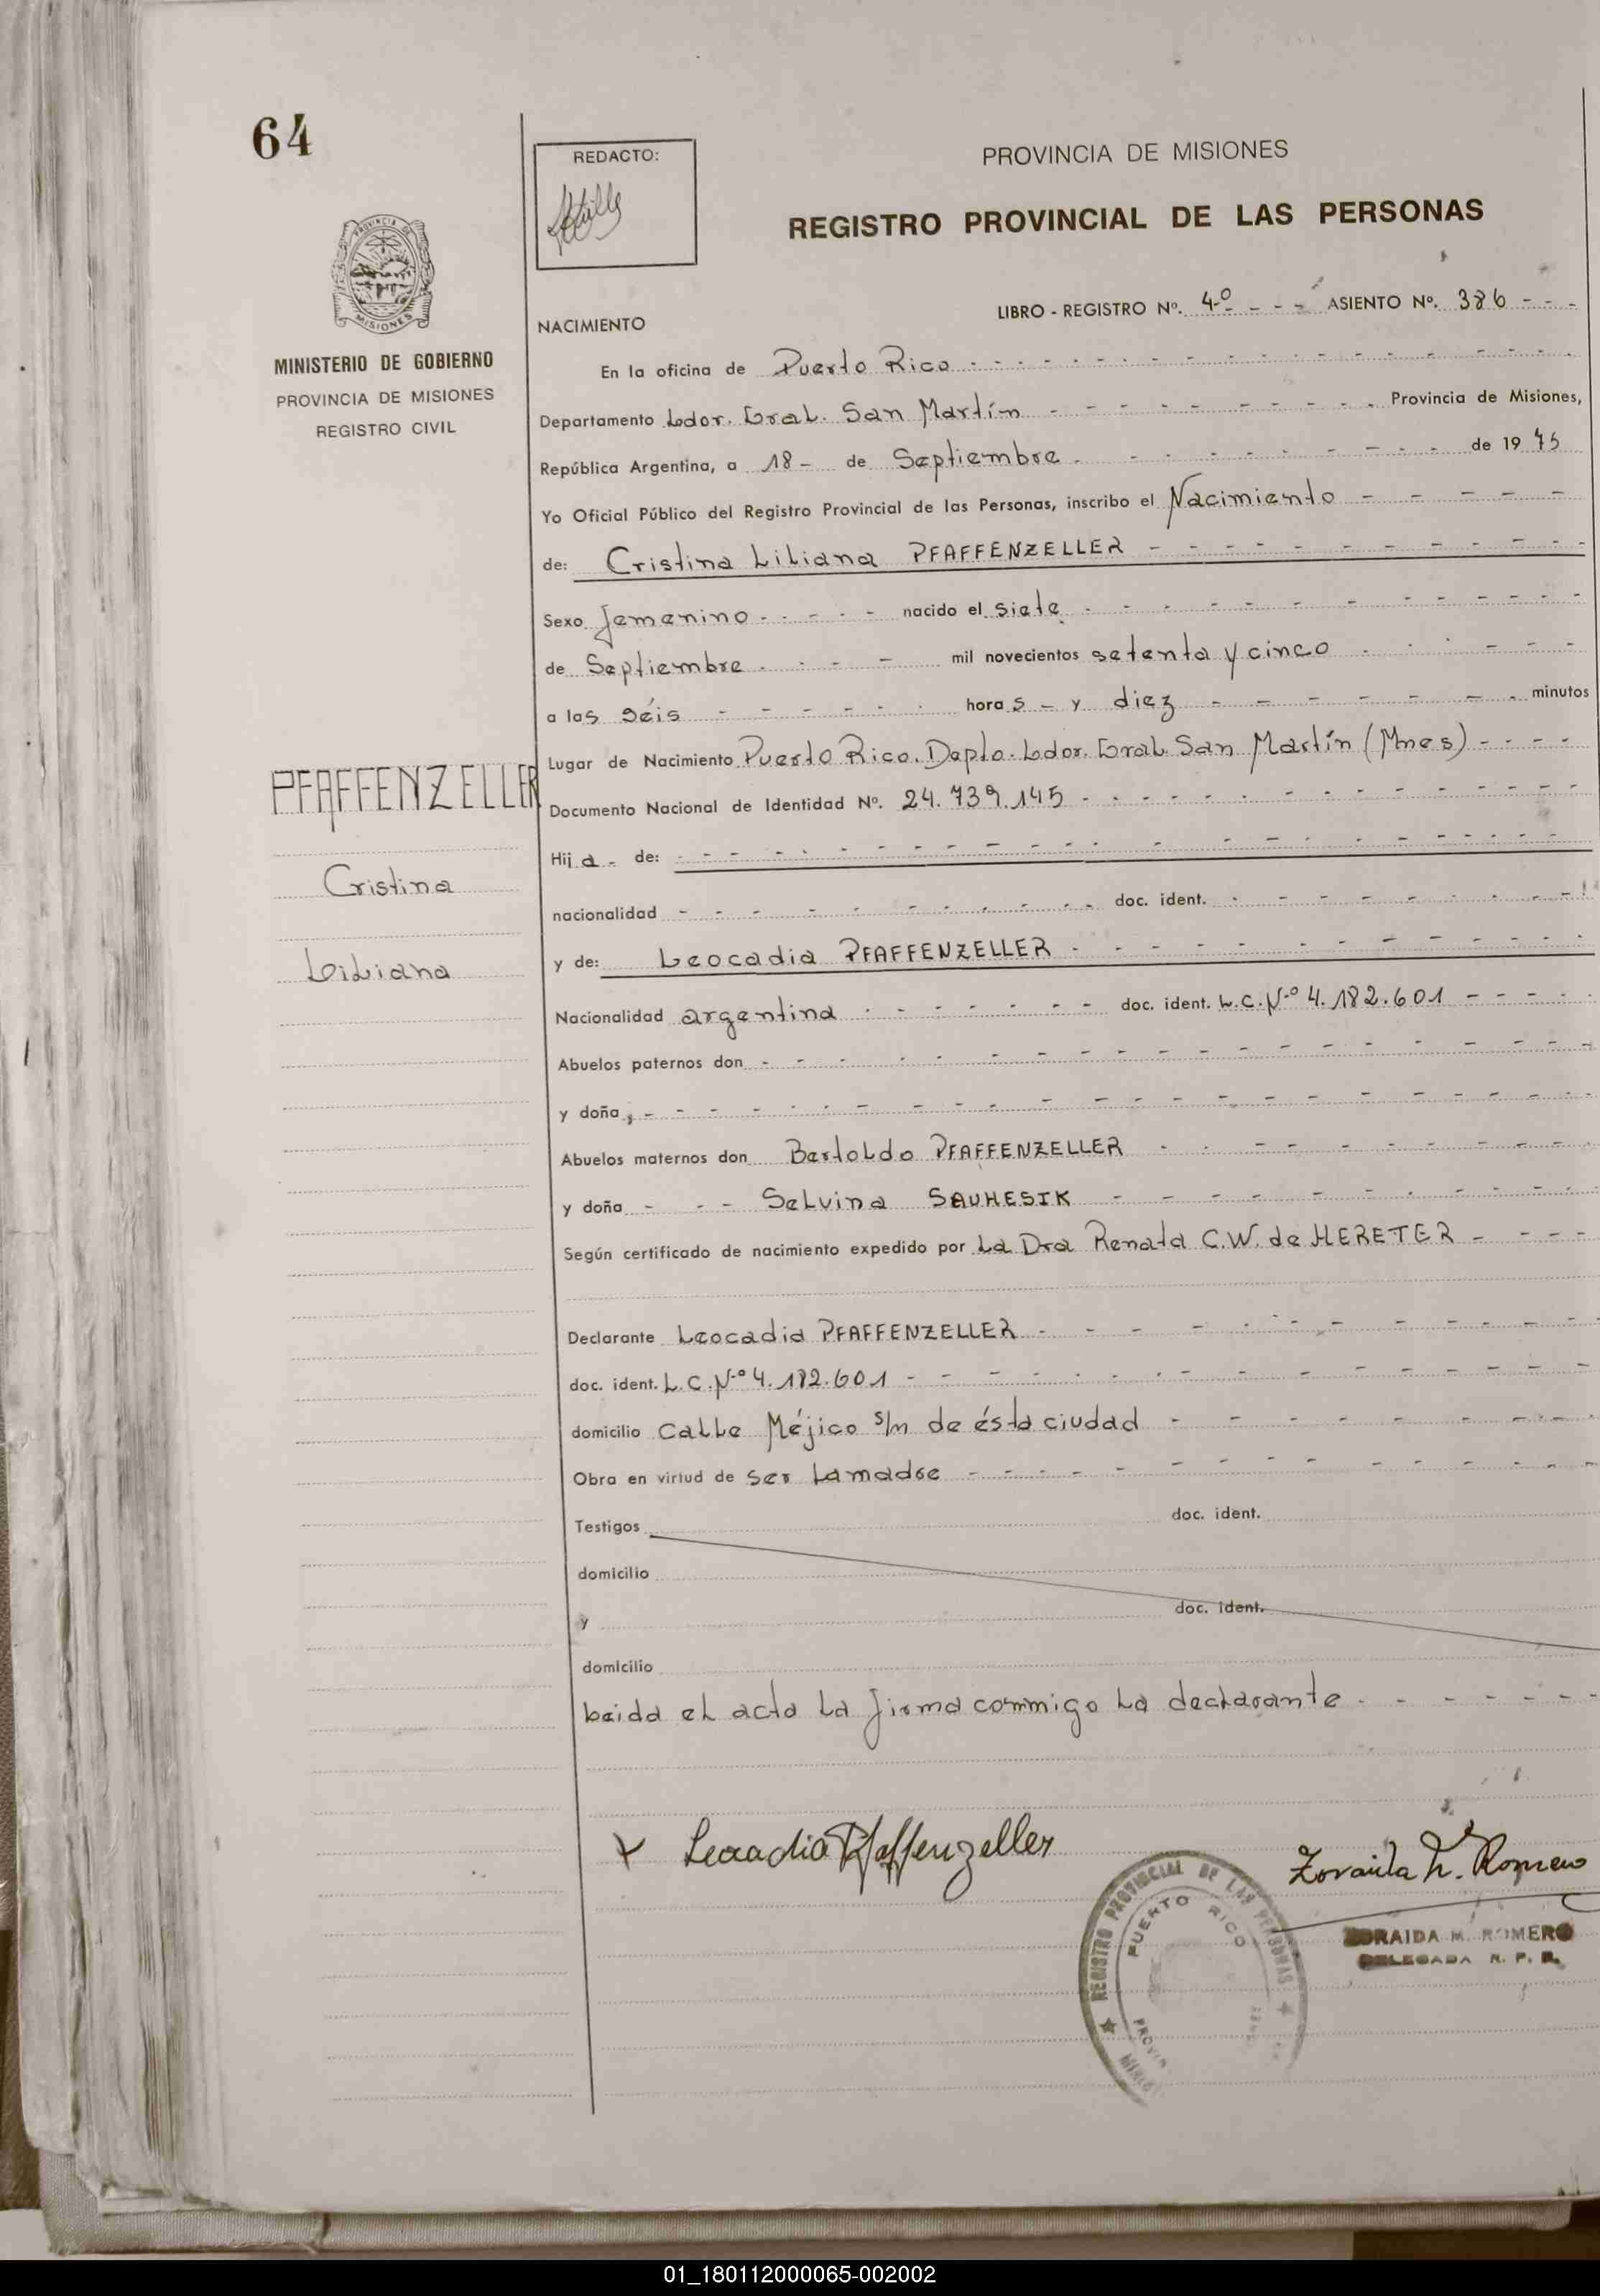 64
REDACTO:
PROVINCIA DE MISIONES
REGISTRO PROVINCIAL DE LAS PERSONAS
PROVINCIA DE
MISIONES
MINISTERIO DE GOBIERNO
PROVINCIA DE MISIONES
REGISTRO CIVIL
LIBRO - REGISTRO Nº. 4º - - - ASIENTO Nº. 386 - - -
NACIMIENTO
En la oficina de Puerto Rico
Departamento Ldor. Gral. San Martín - Provincia de Misiones,
República Argentina, a 18 - de Septiembre - de 19 75
Yo Oficial Público del Registro Provincial de las Personas, inscribo el Nacimiento
de: Cristina Liliana PFAFFENZELLER
Sexo femenino - nacido el siete
de Septiembre - mil novecientos setenta y cinco
a las séis - horas - y diez - minutos
Lugar de Nacimiento Puerto Rico. Depto. Ldor. Gral. San Martín (Mnes)
Documento Nacional de Identidad Nº. 24.739.145
Hija - de:
nacionalidad - doc. ident.
y de: Leocadia PFAFFENZELLER
Nacionalidad argentina - doc. ident. L.C. Nº 4.182.601
Abuelos paternos don
y doña
Abuelos maternos don Bertoldo PFAFFENZELLER
y doña - - - Selvina SAUHESIK
Según certificado de nacimiento expedido por La Dra Renata C.W. de HERETER
Declarante Leocadia PFAFFENZELLER
doc. ident. L.C. Nº 4.182.601
domicilio Calle Méjico s/n de ésta ciudad
Obra en virtud de ser la madre
Testigos doc. ident.
domicilio
y doc. ident.
domicilio
Leida el acta la firma conmigo la declarante
PFAFFENZELLER
Cristina
Liliana
x Leocadia Pfaffenzeller
Zoraida M. Romero
ZORAIDA M. ROMERO
DELEGADA R. P. P.
REGISTRO PROVINCIAL DE LAS PERSONAS
PUERTO RICO
01_180112000065-002002